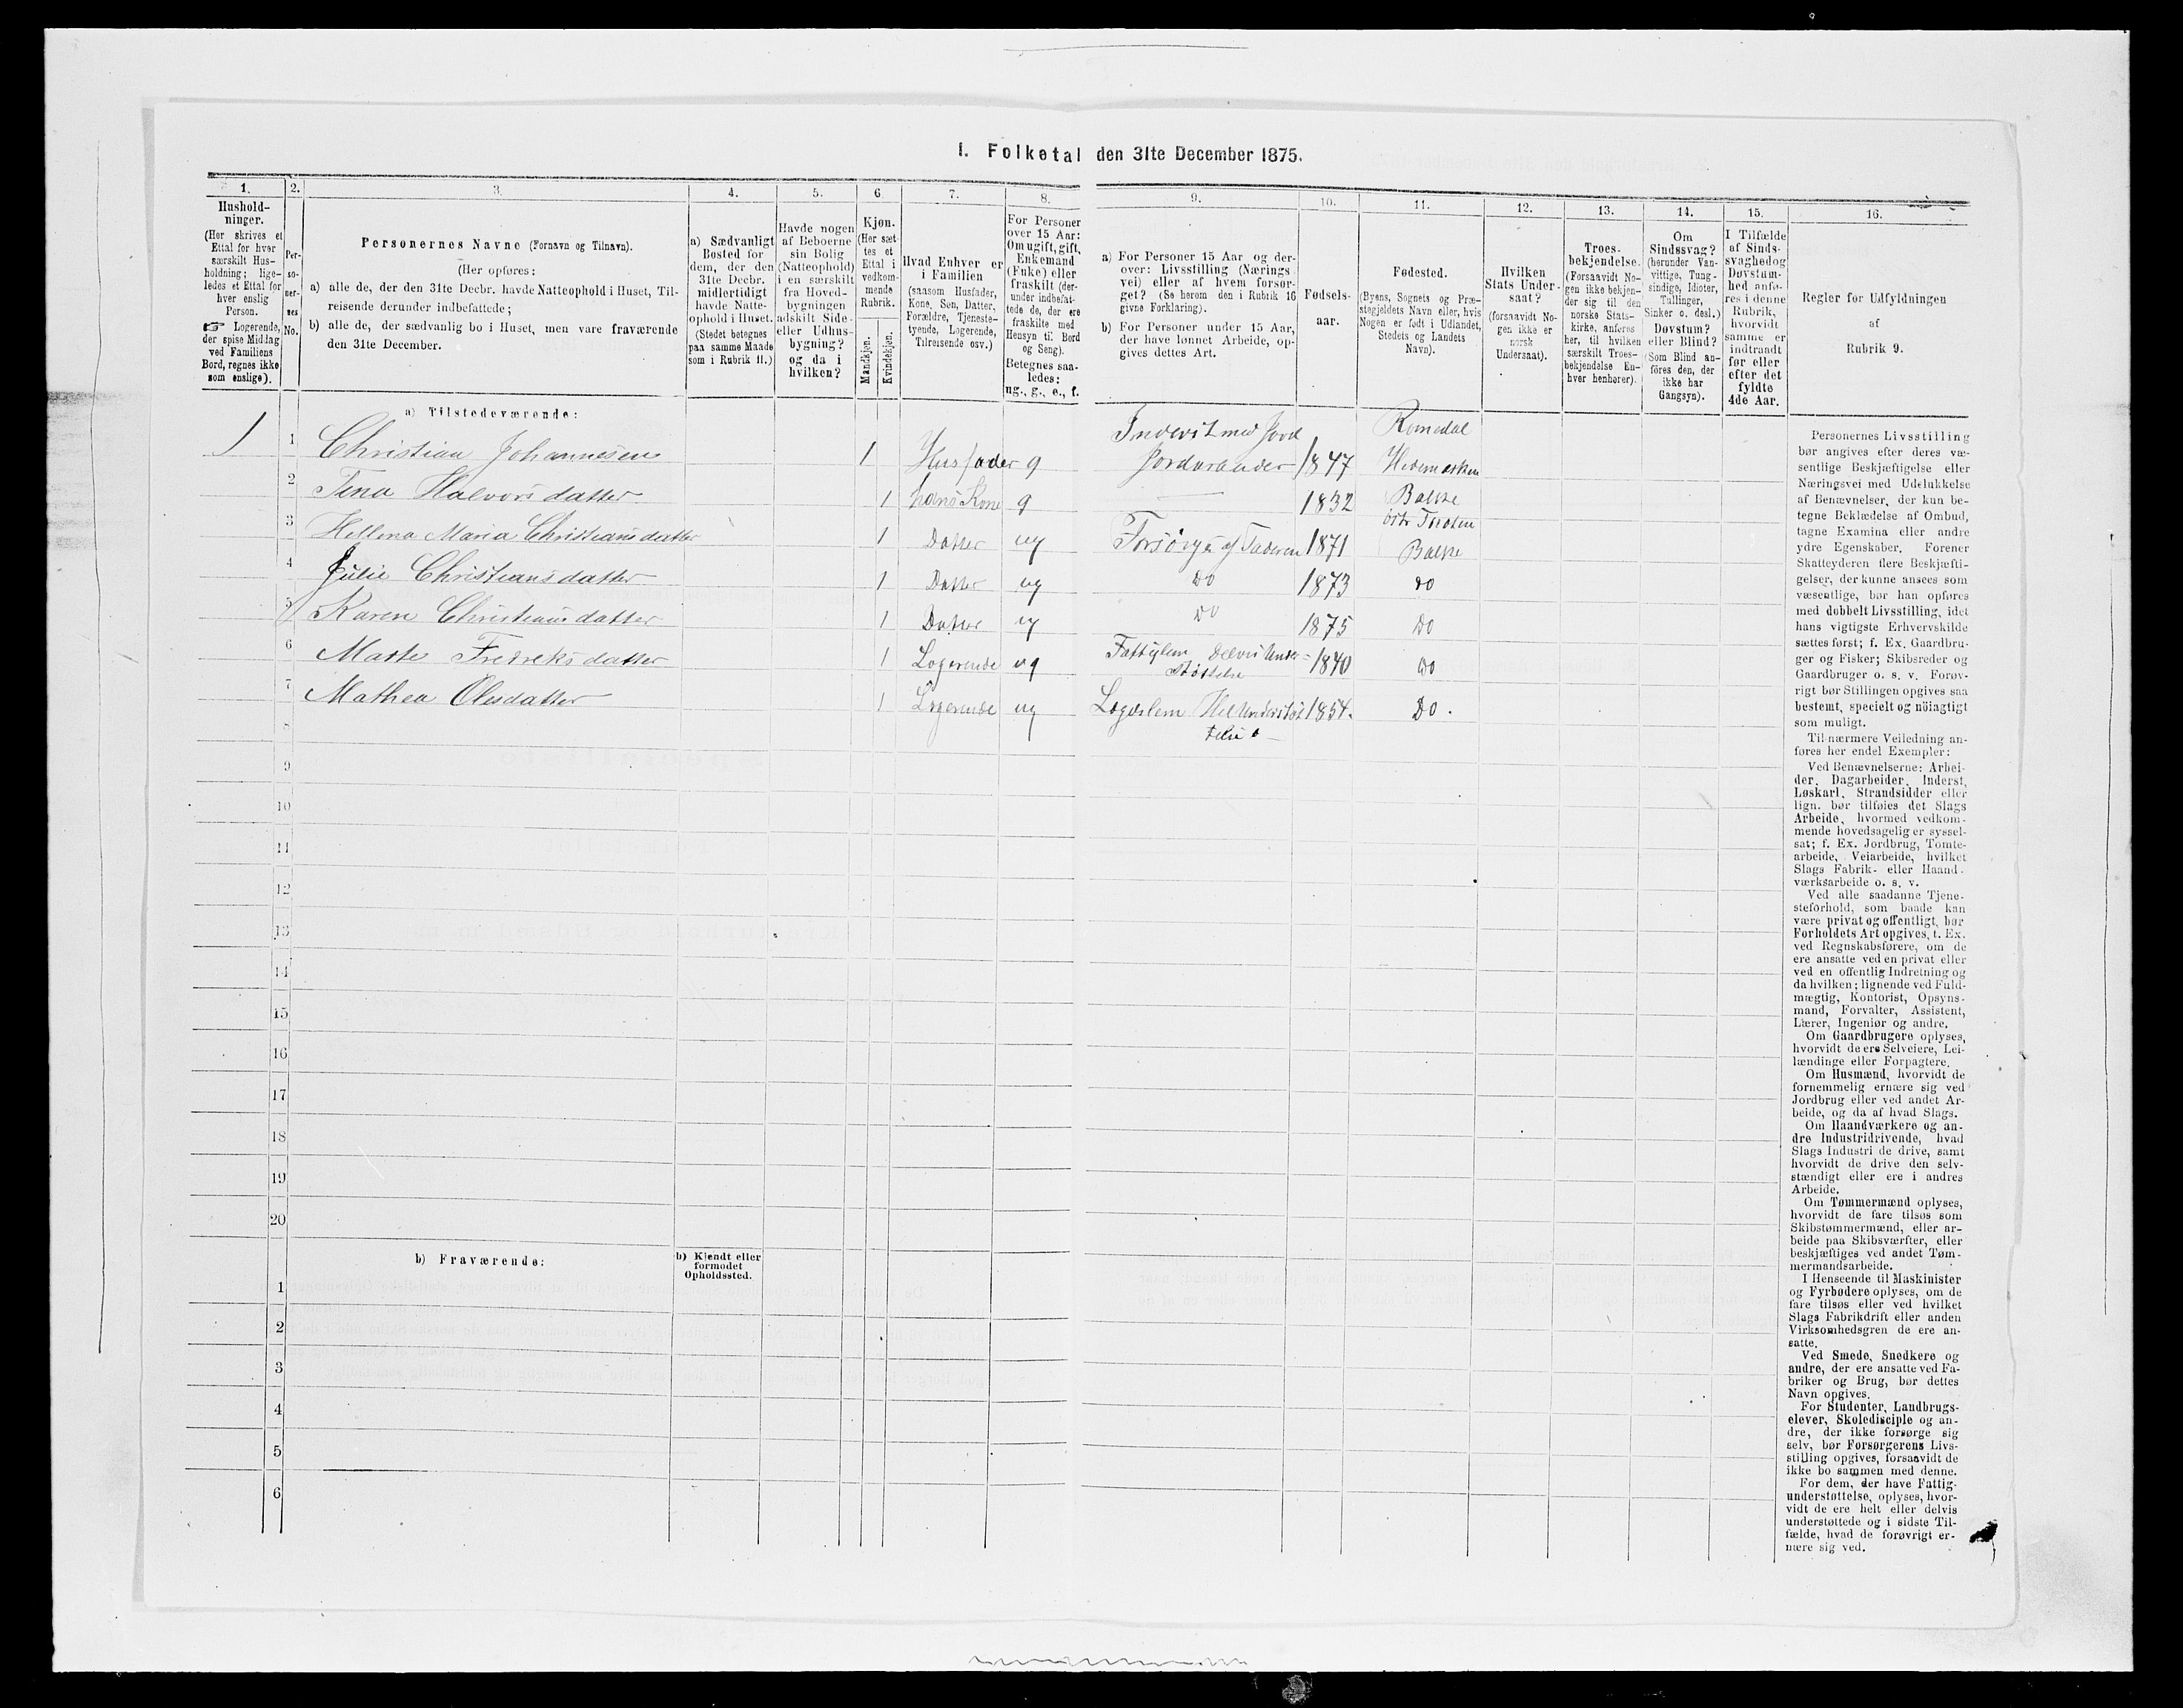 I. Folketal den 31te December 1875.
1.
2.
3.
4.
5.
6.
7.
8.
9.
10.
11.
12.
13.
14.
15.
16.
Hushold-
ninger.
(Her skrives et
Ettal for hver
særskilt Hus-
holdning; lige-
ledes et Ettal for
hver enslig
Person.
☞ Logerende,
der spise Middag
ved Familiens
Bord, regnes ikke
som enslige).
Per-
so-
ner-
nes
No.
Personernes Navne (Fornavn og Tilnavn).
(Her opføres:
a) alle de, der den 31te Decbr. havde Natteophold i Huset, Til-
reisende derunder indbefattede;
b) alle de, der sædvanlig bo i Huset, men vare fraværende
den 31te December.
a) Sædvanligt
Bosted for
dem, der den
31te Decbr.
midlertidigt
havde Natte-
ophold i Huset.
(Stedet betegnes
paa samme Maade
som i Rubrik 11.)
Havde nogen
af Beboerne
sin Bolig
(Natteophold)
i en særskilt
fra Hoved-
bygningen
adskilt Side-
eller Udhus-
bygning?
og da i
hvilken?
Kjøn.
(Her sæt-
tes et
Ettal i
vedkom-
mende
Rubrik.
Mandkjøn.
Kvindekjøn.
Hvad Enhver er
i Familien
(saasom Husfader,
Kone, Søn, Datter,
Forældre, Tjeneste-
tyende, Logerende,
Tilreisende osv.)
For Personer
over 15 Aar:
Om ugift, gift,
Enkemand
(Enke) eller
fraskilt (der-
under indbefat-
tede de, der ere
fraskilte med
Hensyn til Bord
og Seng).
Betegnes saa-
ledes:
ug., g., e., f.
a) For Personer 15 Aar og der-
over: Livsstilling (Nærings-
vei) eller af hvem forsør-
get? (Se herom den i Rubrik 16
givne Forklaring).
b) For Personer under 15 Aar,
der have lønnet Arbeide, op-
gives dettes Art.
Fødsels-
aar.
Fødested.
(Byens, Sognets og Præ-
stegjeldets Navn eller, hvis
Nogen er født i Udlandet,
Stedets og Landets
Navn).
Hvilken
Stats Under-
saat?
(forsaavidt No-
gen ikke er
norsk
Undersaat).
Troes-
bekjendelse.
(Forsaavidt No-
gen ikke bekjen-
der sig til den
norske Stats-
kirke, anføres
her, til hvilken
særskilt Troes-
bekjendelse En-
hver henhører).
Om
Sindssvag?
(herunder Van-
vittige, Tung-
sindige, Idioter,
Tullinger,
Sinker o. desl.)
Døvstum?
eller Blind?
(Som Blind an-
føres den, der
ikke har
Gangsyn).
I Tilfælde
af Sinds-
svaghed og
Døvstum-
hed anfø-
res i denne
Rubrik,
hvorvidt
samme er
indtraadt
før eller
efter det
fyldte
4de Aar.
Regler for Udfyldningen
af
Rubrik 9.
a) Tilstedeværende:
1 1 Christian Johannesen 1 Husfader g Inderst med Jord Jordarander 1847 Romedal Hedemarken
2 Tina Halvorsdatter 1 hans Kone g — 1832 Balke østr Toten
3 Hellena Maria Christiansdatter 1 Datter ug Forsørges af Faderen 1871 Balke
4 Julie Christiansdatter 1 Datter ug Do 1873 Do
5 Karen Christiansdatter 1 Datter ug Do 1875 Do
6 Marte Fredreksdatter 1 Logerende ug Fattiglem Delvis Under-støttelse 1840 Do
7 Mathea Olesdatter 1 Logerende ug Lægdslem Hel Understøt telse 1854. Do.
8
9
10
11
12
13
14
15
16
17
18
19
20
b) Fraværende:
b) Kjendt eller
formodet
Opholdssted.
1
2
3
4
5
6
Personernes Livsstilling
bør angives efter deres væ-
sentlige Beskjæftigelse eller
Næringsvei med Udelukkelse
af Benævnelser, der kun be-
tegne Beklædelse af Ombud,
tagne Examina eller andre
ydre Egenskaber. Forener
Skatteyderen flere Beskjæfti-
gelser, der kunne ansees som
væsentlige, bør han opføres
med dobbelt Livsstilling, idet
hans vigtigste Erhvervskilde
sættes først; f. Ex. Gaardbru-
ger og Fisker; Skibsreder og
Gaardbruger o. s. v. Forøv-
rigt bør Stillingen opgives saa
bestemt, specielt og nöiagtigt
som muligt.
Til nærmere Veiledning an-
føres her endel Exempler:
Ved Benævnelserne: Arbei-
der, Dagarbeider, Inderst,
Løskarl, Strandsidder eller
lign. bør tilføies det Slags
Arbeide, hvormed vedkom-
mende hovedsagelig er syssel-
sat; f. Ex. Jordbrug, Tomte-
arbeide, Veiarbeide, hvilket
Slags Fabrik- eller Haand-
værksarbeide o. s. v.
Ved alle saadanne Tjene-
steforhold, som baade kan
være privat og offentligt, bør
Forholdets Art opgives, f. Ex.
ved Regnskabsførere, om de
ere ansatte ved en privat eller
ved en offentlig Indretning og
da hvilken; lignende ved Fuld-
mægtig, Kontorist, Opsyns-
mand, Forvalter, Assistent,
Lærer, Ingeniør og andre.
Om Gaardbrugere oplyses,
hvorvidt de ere Selveiere, Lei-
lændinge eller Forpagtere.
Om Husmænd, hvorvidt de
fornemmelig ernære sig ved
Jordbrug eller ved andet Ar-
beide, og da af hvad Slags.
Om Haandværkere og an-
dre Industridrivende, hvad
Slags Industri de drive, samt
hvorvidt de drive den selv-
stændigt eller ere i andres
Arbeide.
Om Tømmermænd oplyses,
hvorvidt de fare tilsøs som
Skibstømmermænd, eller ar-
beide paa Skibsværfter, eller
beskjæftiges ved andet Tøm-
mermandsarbeide.
I Henseende til Maskinister
og Fyrbødere oplyses, om de
fare tilsøs eller ved hvilket
Slags Fabrikdrift eller anden
Virksomhedsgren de ere an-
satte.
Ved Smede, Snedkere og
andre, der ere ansatte ved Fa-
briker og Brug, bør dettes
Navn opgives.
For Studenter, Landbrugs-
elever, Skoledisciple og an-
dre, der ikke forsørge sig
selv, bør Forsørgerens Livs-
stilling opgives, forsaavidt de
ikke bo sammen med denne.
For dem, der have Fattig-
understøttelse, oplyses, hvor-
vidt de ere helt eller delvis
understøttede og i sidste Til-
fælde, hvad de forøvrigt er-
nære sig ved.